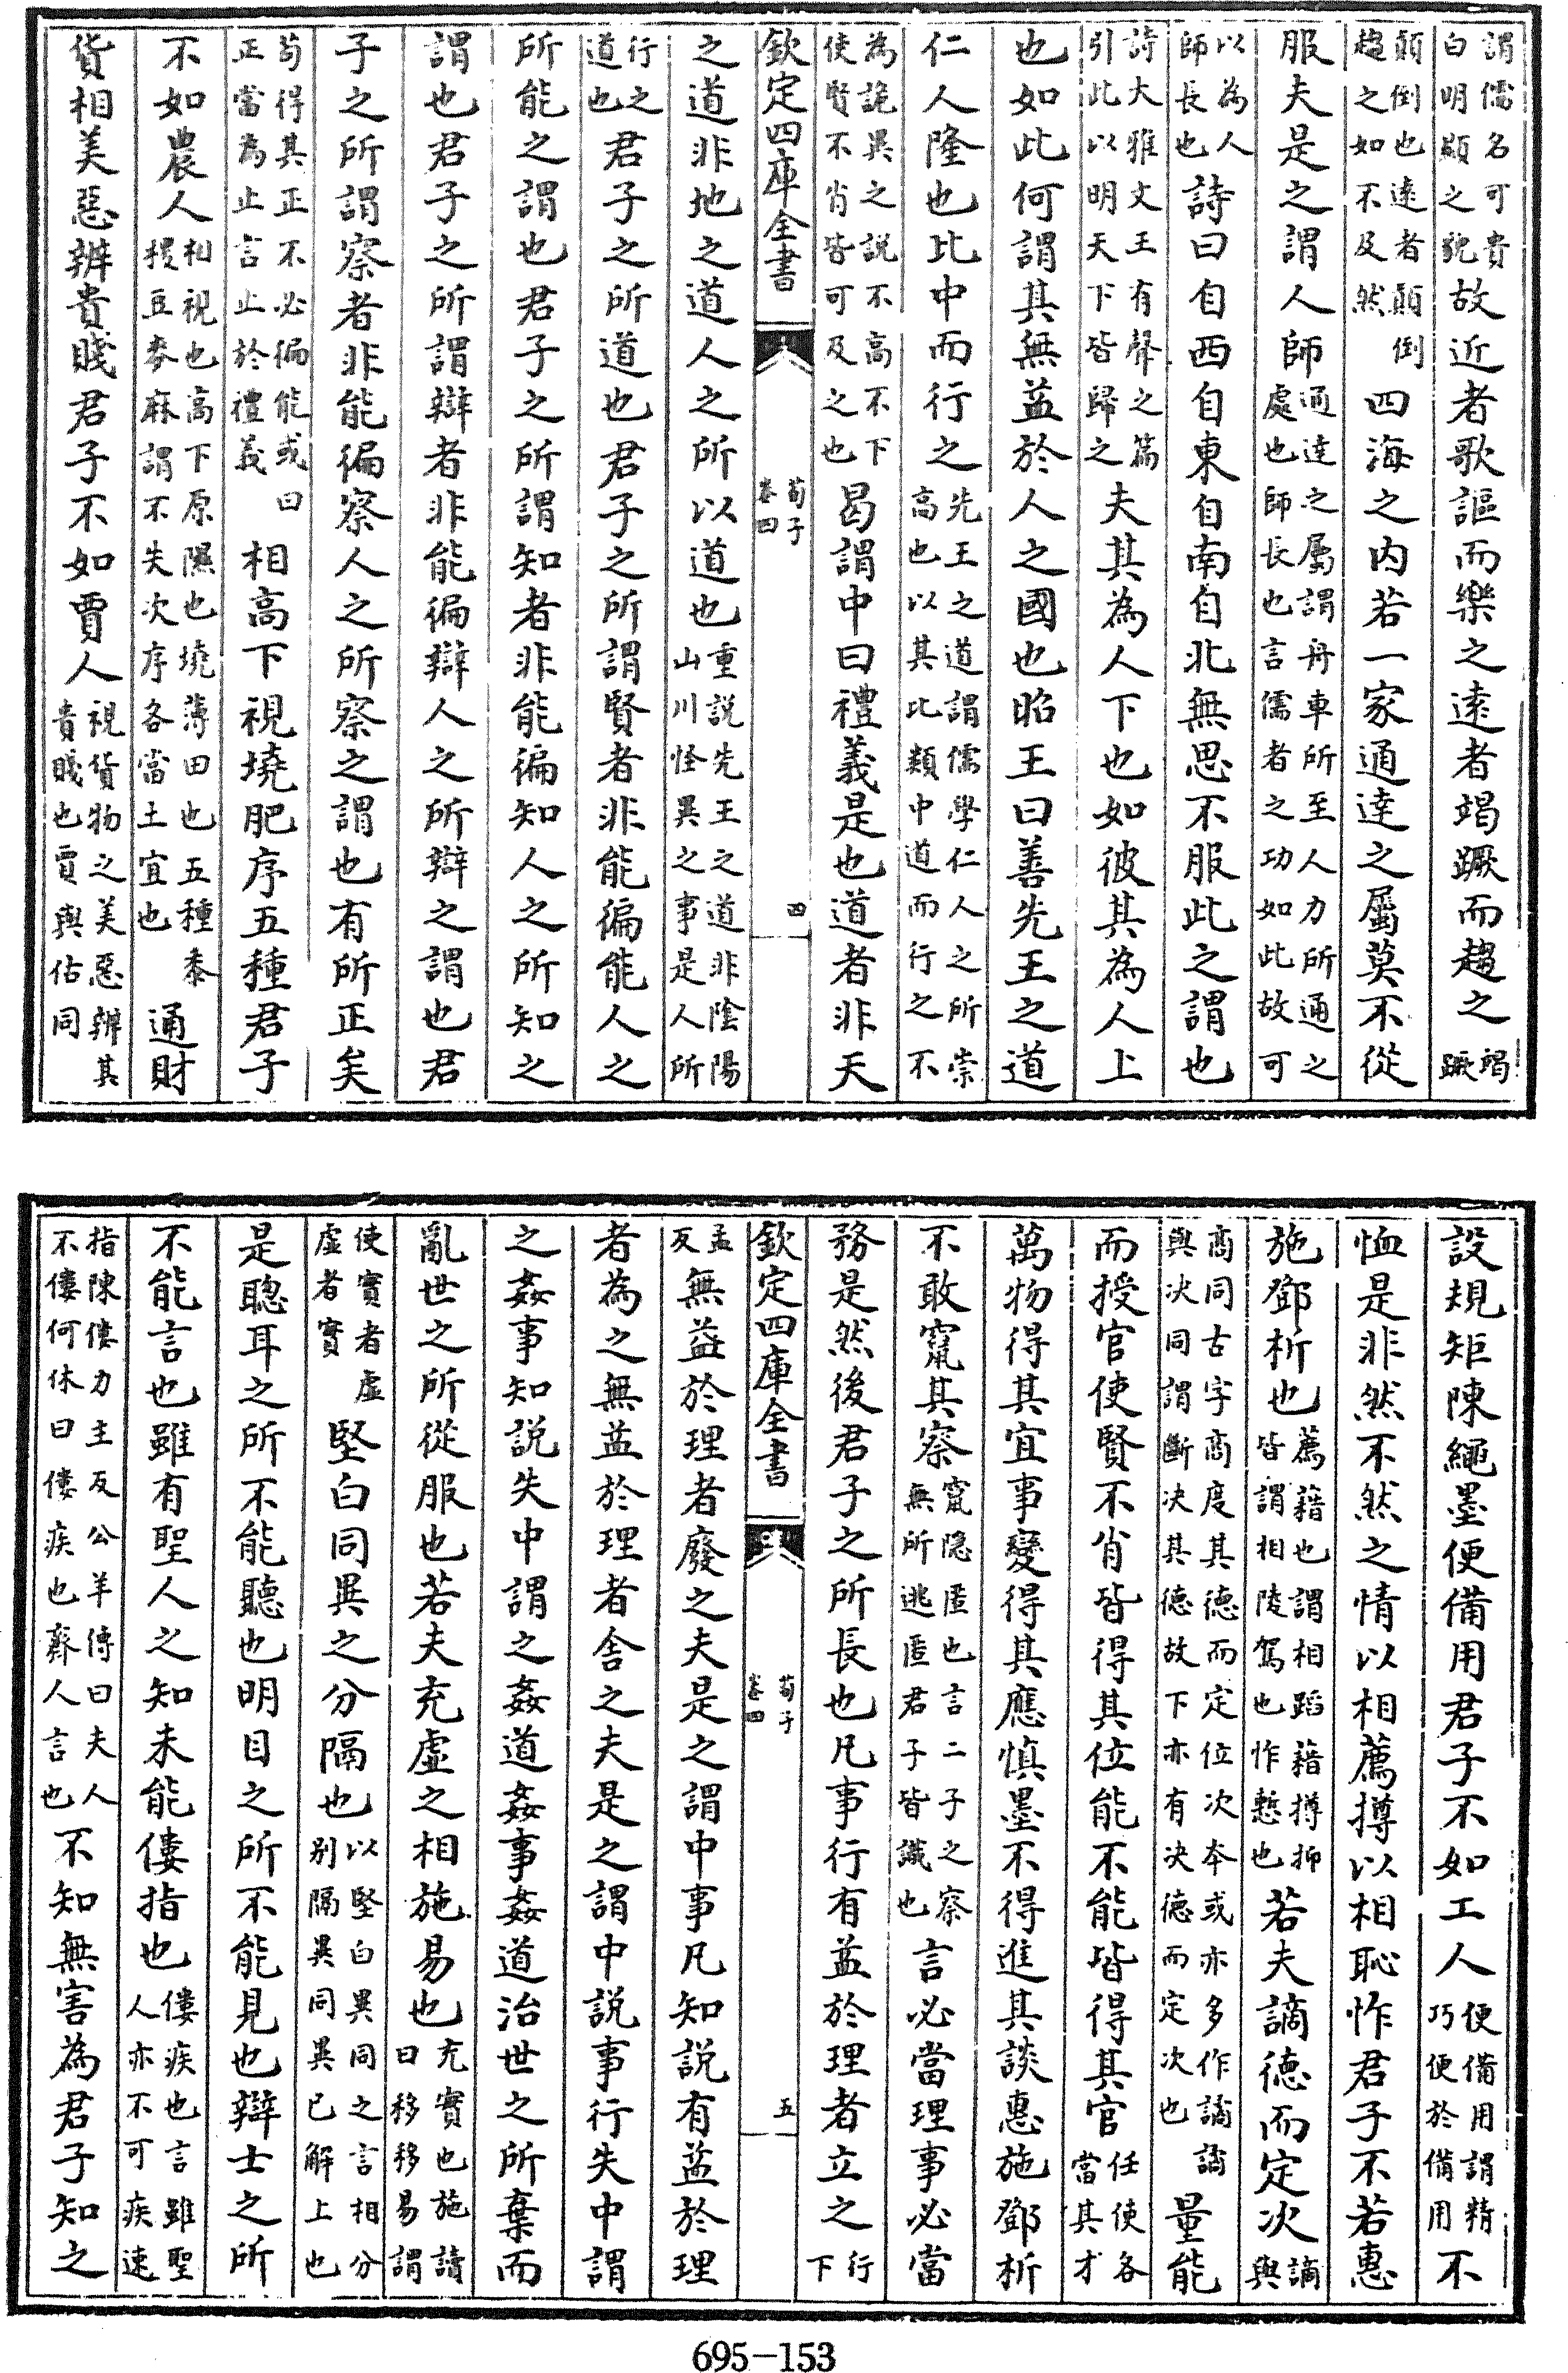 謂儒名可貴白明顯之貌故近者歌謳而樂之遠者竭蹶而趨之竭蹶
顛倒也遠者顛倒趨之如不及然四海之内若一家通達之屬莫不從
服夫是之謂人師通達之屬謂舟車所至人力所通之處也師長也言儒者之功如此故可
以為人師長也詩曰自西自東自南自北無思不服此之謂也
詩大雅文王有聲之篇引此以明天下皆歸之夫其為人下也如彼其為人上
也如此何謂其無益於人之國也昭王曰善先王之道
仁人隆也比中而行之先王之道謂儒學仁人之所崇高也以其比類中道而行之不
為詭異之説不高不下使賢不肖皆可及之也曷謂中曰禮義是也道者非天
欽定四庫全書 荀子卷四 四
之道非地之道人之所以道也重説先王之道非陰陽山川怪異之事是人所
行之道也君子之所道也君子之所謂賢者非能徧能人之
所能之謂也君子之所謂知者非能徧知人之所知之
謂也君子之所謂辯者非能徧辯人之所辯之謂也君
子之所謂察者非能徧察人之所察之謂也有所正矣
苟得其正不必徧能或曰正當為止言止於禮義相高下視墝肥序五種君子
不如農人相視也高下原隰也墝薄田也五種黍稷豆麥麻謂不失次序各當土宜也通財
貨相美惡辨貴賤君子不如賈人視貨物之美惡辨其貴賤也賈與估同
設規矩陳繩墨便備用君子不如工人便備用謂精巧便於備用不
恤是非然不然之情以相薦撙以相恥怍君子不若惠
施鄧析也薦藉也謂相蹈藉撙抑皆謂相陵駕也怍慙也若夫謫德而定次謫與
商同古字商度其德而定位次本或亦多作譎譎與决同謂斷决其德故下亦有决德而定次也量能
而授官使賢不肖皆得其位能不能皆得其官任使各當其才
萬物得其宜事變得其應慎墨不得進其談惠施鄧析
不敢竄其察竄隱匿也言二子之察無所逃匿君子皆識也言必當理事必當
務是然後君子之所長也凡事行有益於理者立之行下
欽定四庫全書 荀子卷四 五
孟反無益於理者廢之夫是之謂中事凡知説有益於理
者為之無益於理者舍之夫是之謂中説事行失中謂
之姦事知説失中謂之姦道姦事姦道治世之所棄而
亂世之所從服也若夫充虛之相施易也充實也施讀曰移移易謂
使實者虛虛者實堅白同異之分隔也以堅白異同之言相分别隔異同異已解上也
是聰耳之所不能聽也明目之所不能見也辯士之所
不能言也雖有聖人之知未能僂指也僂疾也言雖聖人亦不可疾速
指陳僂力主反公羊傳曰夫人不僂何休曰僂疾也齊人言也不知無害為君子知之
695-153